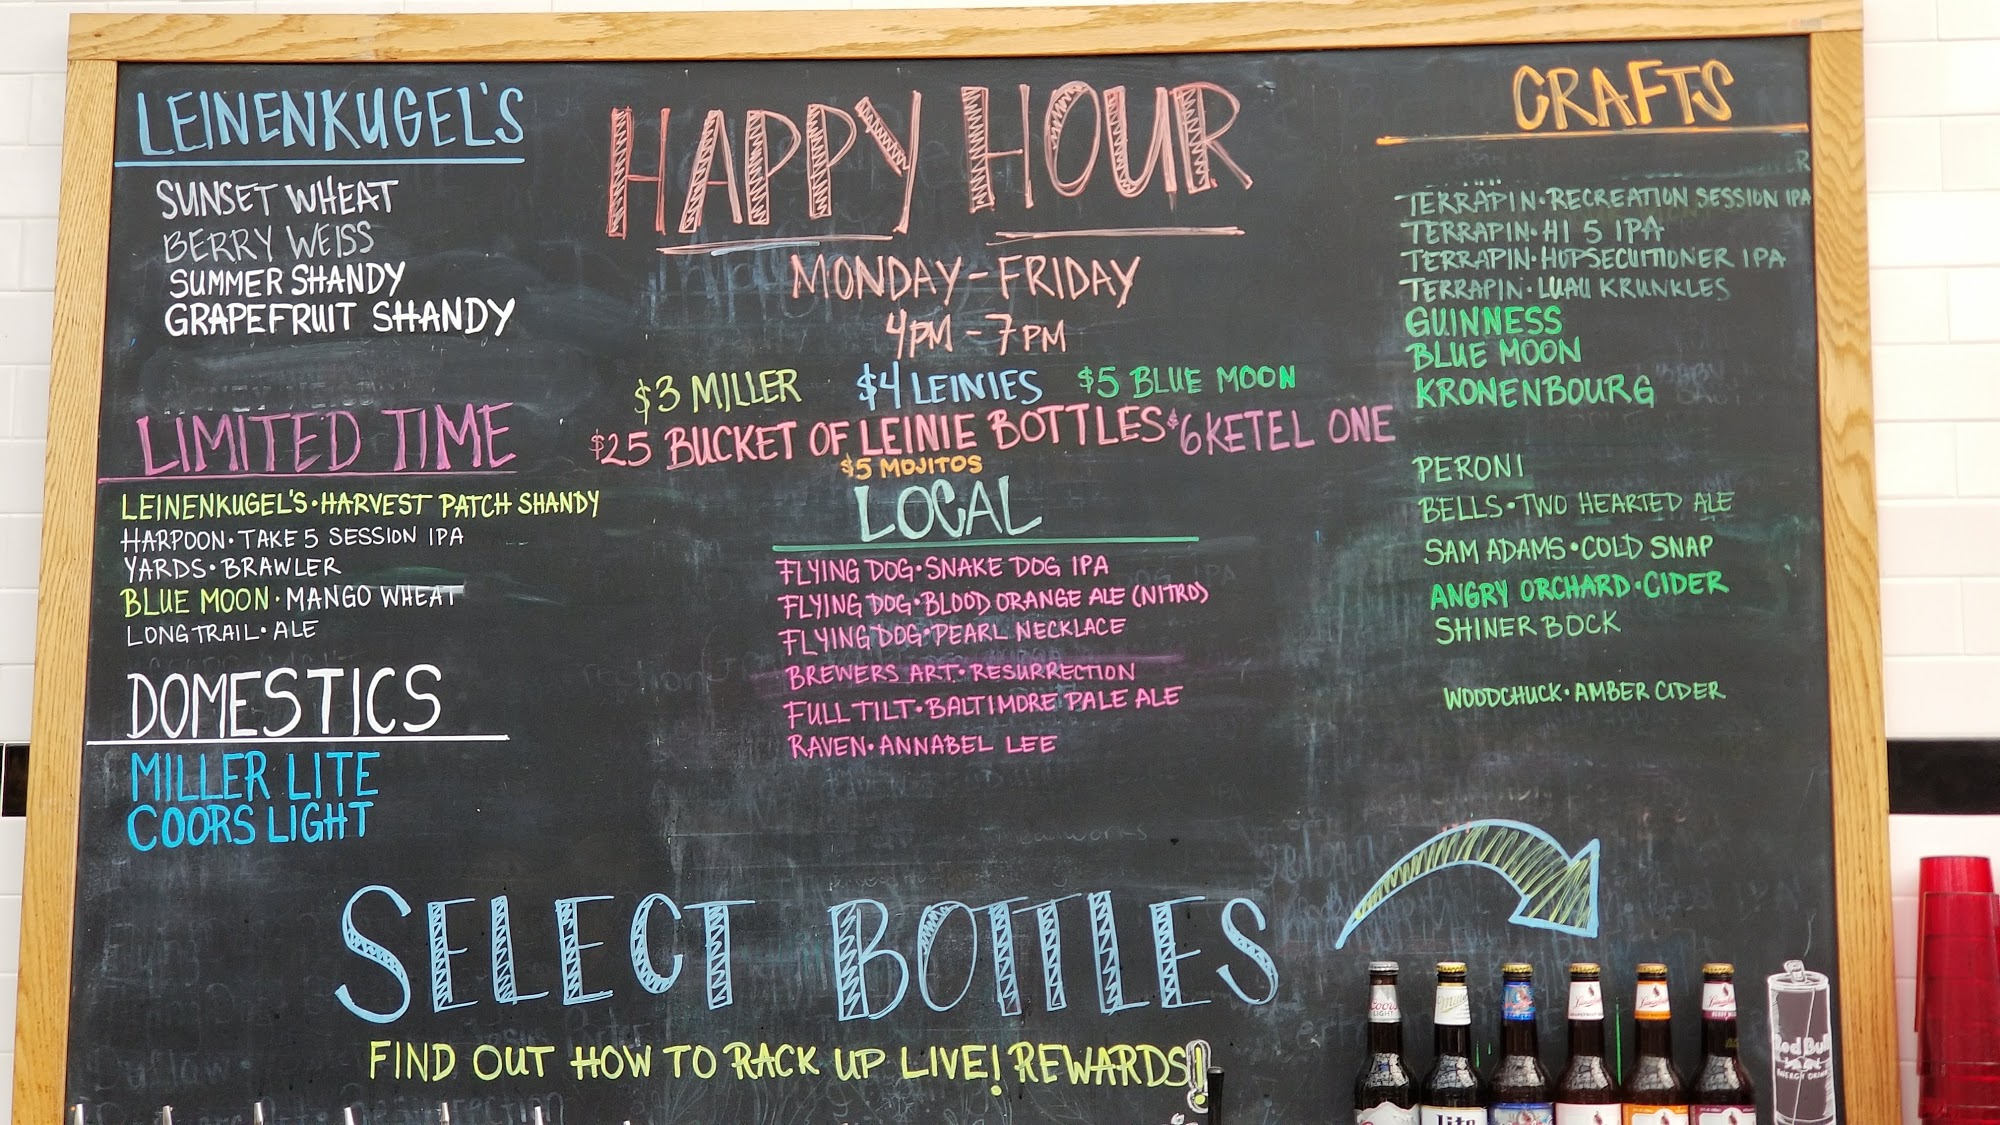 LEINENKUGEL'S
SUNSET WHEAT
BERRY WEISS
SUMMER SHANDY
GRAPEFRUIT SHANDY
LIMITED TIME
LEINENKUGEL'S • HARVEST PATCH SHANDY
HARPOON • TAKE 5 SESSION IPA
YARDS • BRAWLER
BLUE MOON • MANGO WHEAT
LONG TRAIL • ALE
DOMESTICS
MILLER LITE
COORS LIGHT
HAPPY HOUR
MONDAY - FRIDAY
4PM - 7PM
$3 MILLER $4 LEINIES $5 BLUE MOON
$25 BUCKET OF LEINIE BOTTLES $6 KETEL ONE
$5 MOJITOS
LOCAL
FLYING DOG • SNAKE DOG IPA
FLYING DOG • BLOOD ORANGE ALE (NITRO)
FLYING DOG • PEARL NECKLACE
BREWERS ART • RESURRECTION
FULL TILT • BALTIMORE PALE ALE
RAVEN • ANNABEL LEE
CRAFTS
TERRAPIN • RECREATION SESSION IPA
TERRAPIN • HI 5 IPA
TERRAPIN • HOPSECUITIONER IPA
TERRAPIN • LUAU KRUNKLES
GUINNESS
BLUE MOON
KRONENBOURG
PERONI
BELLS • TWO HEARTED ALE
SAM ADAMS • COLD SNAP
ANGRY ORCHARD • CIDER
SHINER BOCK
WOODCHUCK • AMBER CIDER
SELECT BOTTLES
FIND OUT HOW TO RACK UP LIVE! REWARDS!
Coors
LIGHT
Miller
Lite
Red Bull
ENERGY DRINK